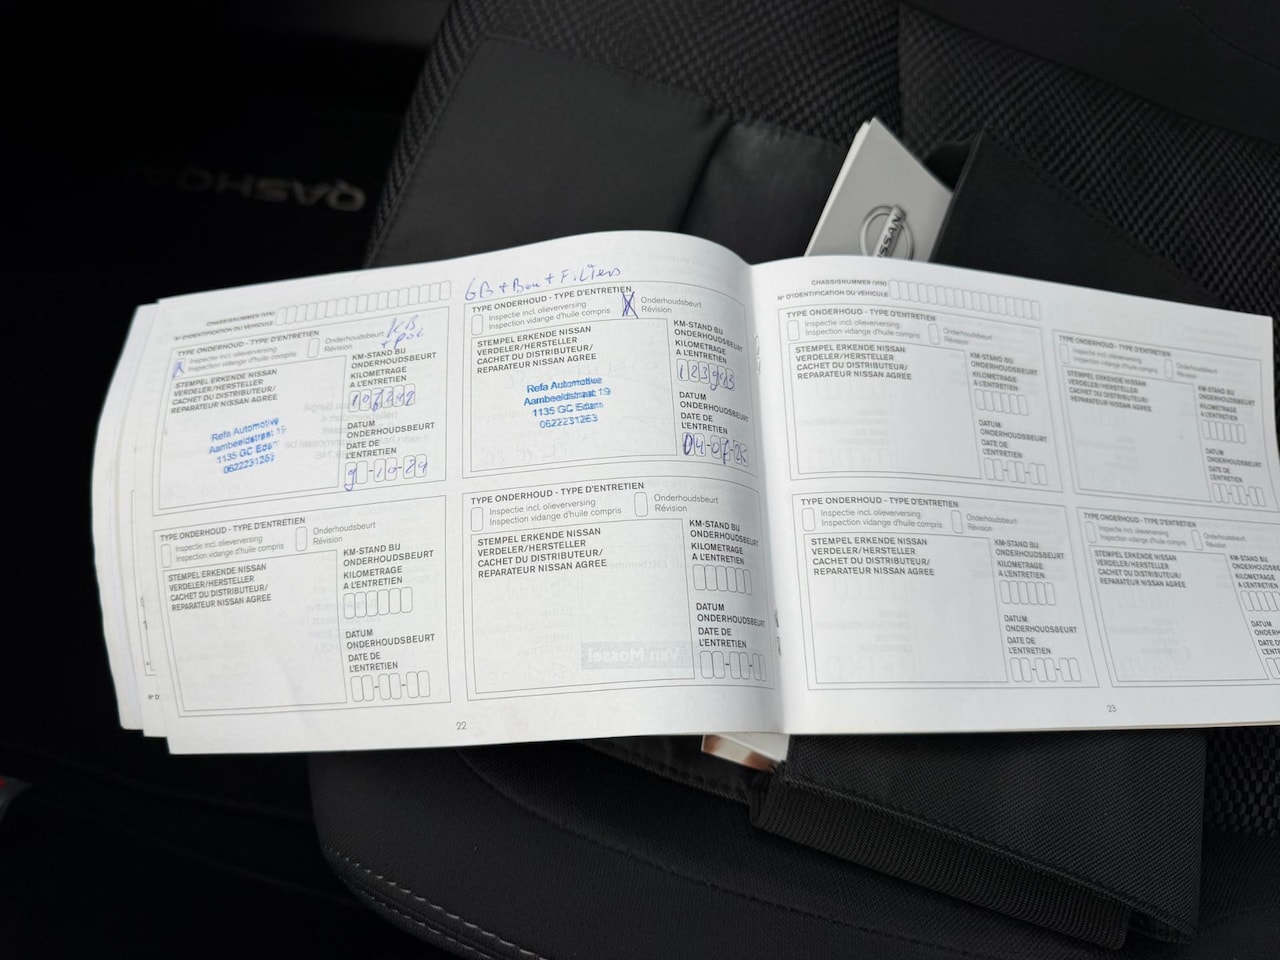 QASHQAI
NISSAN
GB + Bou + Filters
CHASSISNUMMER (VIN)
N° D'IDENTIFICATION DU VEHICULE
KB
+ pol
TYPE ONDERHOUD - TYPE D'ENTRETIEN
Inspectie incl. olieverversing
Inspection vidange d'huile compris
Onderhoudsbeurt
STEMPEL ERKENDE NISSAN
VERDELER/HERSTELLER
CACHET DU DISTRIBUTEUR/
REPARATEUR NISSAN AGREE
KM-STAND BIJ
ONDERHOUDSBEURT
KILOMETRAGE
A L'ENTRETIEN
Refa Automotive
Aambeeldstraat 19
1135 GC Edam
0622231263
DATUM
ONDERHOUDSBEURT
DATE DE
L'ENTRETIEN
TYPE ONDERHOUD - TYPE D'ENTRETIEN
Inspectie incl. olieverversing
Inspection vidange d'huile compris
X
Onderhoudsbeurt
Révision
STEMPEL ERKENDE NISSAN
VERDELER/HERSTELLER
CACHET DU DISTRIBUTEUR/
REPARATEUR NISSAN AGREE
KM-STAND BIJ
ONDERHOUDSBEURT
KILOMETRAGE
A L'ENTRETIEN
Refa Automotive
Aambeeldstraat 19
1135 GC Edam
0622231263
DATUM
ONDERHOUDSBEURT
DATE DE
L'ENTRETIEN
TYPE ONDERHOUD - TYPE D'ENTRETIEN
Inspectie incl. olieverversing
Inspection vidange d'huile compris
Onderhoudsbeurt
Révision
STEMPEL ERKENDE NISSAN
VERDELER/HERSTELLER
CACHET DU DISTRIBUTEUR/
REPARATEUR NISSAN AGREE
KM-STAND BIJ
ONDERHOUDSBEURT
KILOMETRAGE
A L'ENTRETIEN
DATUM
ONDERHOUDSBEURT
DATE DE
L'ENTRETIEN
TYPE ONDERHOUD - TYPE D'ENTRETIEN
Inspectie incl. olieverversing
Inspection vidange d'huile compris
Onderhoudsbeurt
Révision
STEMPEL ERKENDE NISSAN
VERDELER/HERSTELLER
CACHET DU DISTRIBUTEUR/
REPARATEUR NISSAN AGREE
KM-STAND BIJ
ONDERHOUDSBEURT
KILOMETRAGE
A L'ENTRETIEN
DATUM
ONDERHOUDSBEURT
DATE DE
L'ENTRETIEN
22
CHASSISNUMMER (VIN)
N° D'IDENTIFICATION DU VEHICULE
TYPE ONDERHOUD - TYPE D'ENTRETIEN
Inspectie incl. olieverversing
Inspection vidange d'huile compris
Onderhoudsbeurt
Révision
STEMPEL ERKENDE NISSAN
VERDELER/HERSTELLER
CACHET DU DISTRIBUTEUR/
REPARATEUR NISSAN AGREE
KM-STAND BIJ
ONDERHOUDSBEURT
KILOMETRAGE
A L'ENTRETIEN
DATUM
ONDERHOUDSBEURT
DATE DE
L'ENTRETIEN
TYPE ONDERHOUD - TYPE D'ENTRETIEN
Inspectie incl. olieverversing
Inspection vidange d'huile compris
Onderhoudsbeurt
Révision
STEMPEL ERKENDE NISSAN
VERDELER/HERSTELLER
CACHET DU DISTRIBUTEUR/
REPARATEUR NISSAN AGREE
KM-STAND BIJ
ONDERHOUDSBEURT
KILOMETRAGE
A L'ENTRETIEN
DATUM
ONDERHOUDSBEURT
DATE DE
L'ENTRETIEN
TYPE ONDERHOUD - TYPE D'ENTRETIEN
Inspectie incl. olieverversing
Inspection vidange d'huile compris
Onderhoudsbeurt
Révision
STEMPEL ERKENDE NISSAN
VERDELER/HERSTELLER
CACHET DU DISTRIBUTEUR/
REPARATEUR NISSAN AGREE
KM-STAND BIJ
ONDERHOUDSBEURT
KILOMETRAGE
A L'ENTRETIEN
DATUM
ONDERHOUDSBEURT
DATE DE
L'ENTRETIEN
TYPE ONDERHOUD - TYPE D'ENTRETIEN
Inspectie incl. olieverversing
Inspection vidange d'huile compris
Onderhoudsbeurt
Révision
STEMPEL ERKENDE NISSAN
VERDELER/HERSTELLER
CACHET DU DISTRIBUTEUR/
REPARATEUR NISSAN AGREE
KM-STAND BIJ
KILOMETRAGE
A L'ENTRETIEN
DATUM
DATE DE
L'ENTRETIEN
23